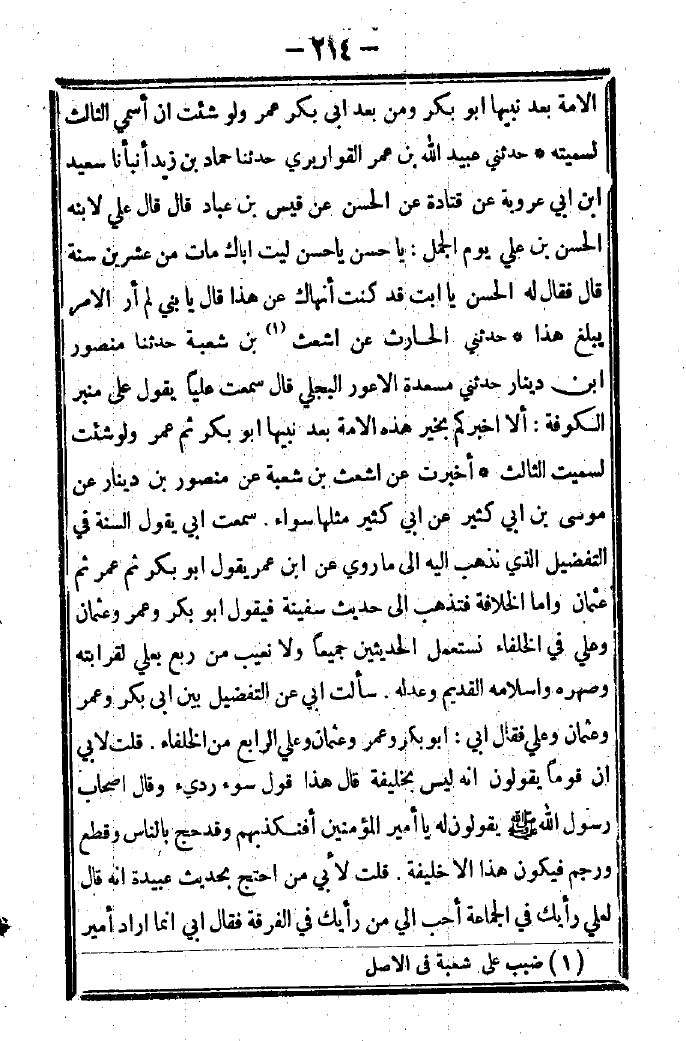 - ٢١٤ -
الامة بعد نبيها ابو بكر ومن بعد ابى بكر عمر ولو شئت ان أسمي الثالث
لسميته * حدثني عبيد الله بن عمر القواريري حدثنا حماد بن زيد أنبأنا سعيد
ابن ابي عروبة عن قتادة عن الحسن عن قيس بن عباد قال قال علي لابنه
الحسن بن علي يوم الجمل : يا حسن ياحسن ليت اباك مات من عشرين سنة
قال فقال له الحسن يا ابت قد كنت أنهاك عن هذا قال يا بني لم أر الامر
يبلغ هذا * حدثني الحارث عن اشعث (١) بن شعبة حدثنا منصور
ابن دينار حدثني مسعدة الاعور البجلي قال سمعت علياً يقول على منبر
الكوفة : ألا اخبركم بخير هذه الامة بعد نبيها ابو بكر ثم عمر ولو شئت
لسميت الثالث * أخبرت عن اشعث بن شعبة عن منصور بن دينار عن
موسى بن ابي كثير عن ابي كثير مثلها سواء . سمعت ابي يقول السنة في
التفضيل الذي نذهب اليه الى ما روي عن ابن عمر يقول ابو بكر ثم عمر ثم
عثمان واما الخلافة فنذهب الى حديث سفينة فيقول ابو بكر وعمر وعثمان
وعلي في الخلفاء نستعمل الحديثين جميعاً ولا نعيب من ربع بعلي لقرابته
وصهره واسلامه القديم وعدله . سألت ابي عن التفضيل بين ابى بكر وعمر
وعثمان وعلي فقال ابي : ابو بكر وعمر وعثمان وعلي الرابع من الخلفاء . قلت لابي
ان قوماً يقولون انه ليس بخليفة قال هذا قول سوء رديء وقال اصحاب
رسول الله ﷺ يقولون له يا أمير المؤمنين أفنكذبهم وقد حج بالناس وقطع
ورجم فيكون هذا الا خليفة . قلت لأبي من احتج بحديث عبيدة انه قال
لعلي رأيك في الجماعة أحب الي من رأيك في الفرقة فقال ابي انما اراد أمير
(١) ضبب على شعبة فى الاصل